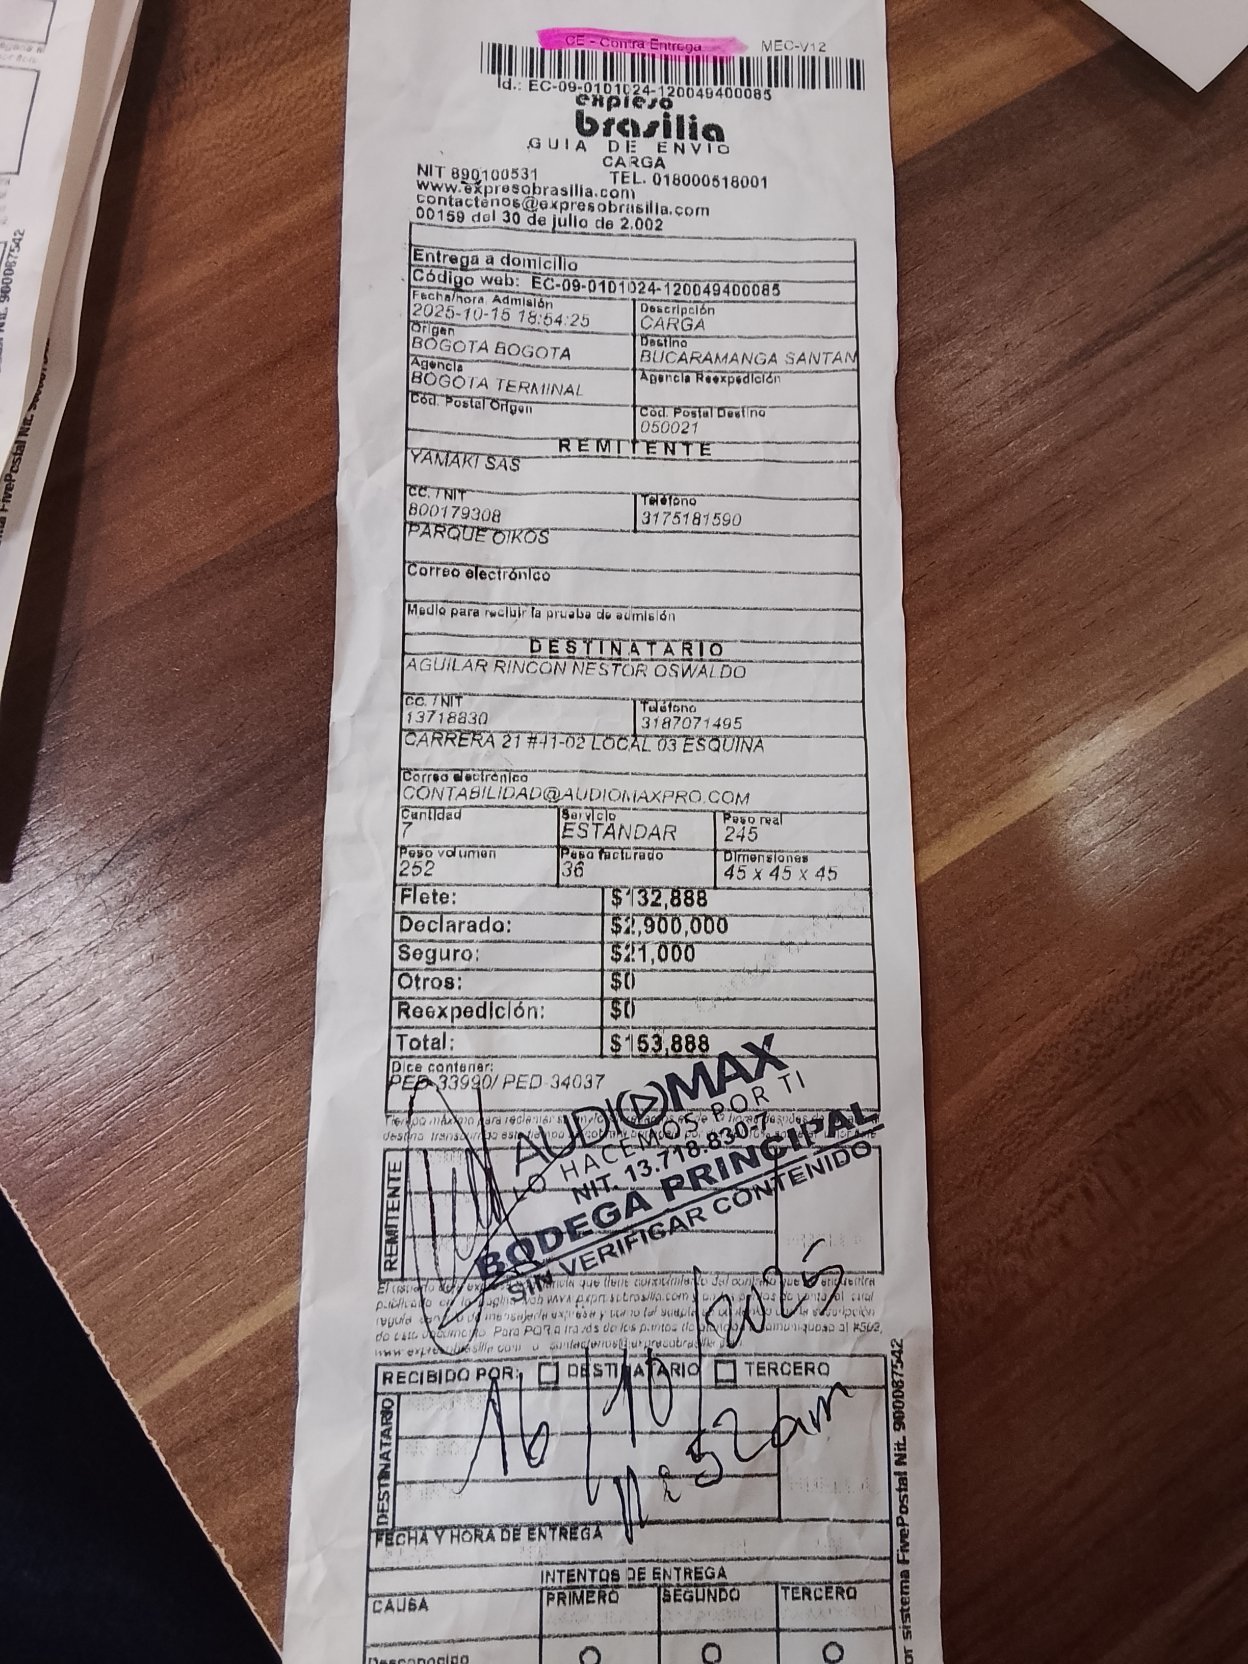 CE - Contra Entrega
MEC-V12
Id.: EC-09-0101024-120049400085
expreso
brasilia
GUIA DE ENVIO
CARGA
NIT 890100531 TEL. 018000518001
www.expresobrasilia.com
contactenos@expresobrasilia.com
00159 del 30 de julio de 2.002
Entrega a domicilio
Código web: EC-09-0101024-120049400085
Fecha/hora. Admisión Descripción
2025-10-15 18:54:25 CARGA
Origen Destino
BOGOTA BOGOTA BUCARAMANGA SANTAN
Agencia Agencia Reexpedición
BOGOTA TERMINAL
Cod. Postal Origen Cod. Postal Destino
050021
REMITENTE
YAMAKI SAS
CC. / NIT Teléfono
800179308 3175181590
PARQUE OIKOS
Correo electrónico
Medio para recibir la prueba de admisión
DESTINATARIO
AGUILAR RINCON NESTOR OSWALDO
CC. / NIT Teléfono
13718830 3187071495
CARRERA 21 #41-02 LOCAL 03 ESQUINA
Correo electrónico
CONTABILIDAD@AUDIOMAXPRO.COM
Cantidad Servicio Peso real
7 ESTANDAR 245
Peso volumen Peso facturado Dimensiones
252 36 45 x 45 x 45
Flete: $132,888
Declarado: $2,900,000
Seguro: $21,000
Otros: $0
Reexpedición: $0
Total: $153,888
Dice contener:
PED-33990/ PED-34037
AUDIOMAX
LO HACEMOS POR TI
NIT. 13.718.830-7
BODEGA PRINCIPAL
SIN VERIFICAR CONTENIDO
REMITENTE
RECIBIDO POR: DESTINATARIO TERCERO
16/10/2025
11:52am
DESTINATARIO
FECHA Y HORA DE ENTREGA
INTENTOS DE ENTREGA
CAUSA PRIMERO SEGUNDO TERCERO
Desconocido
or sistema FivePostal Nit. 900087542